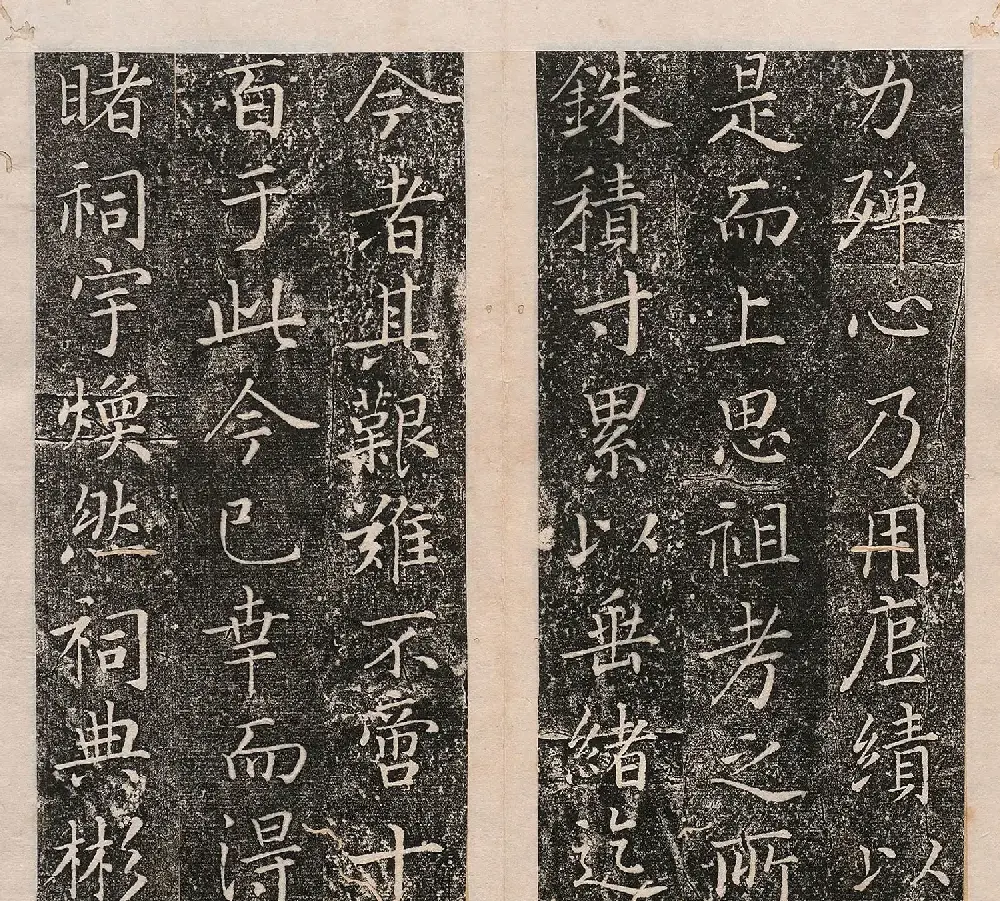 力殫心乃用底績以
是而上思祖考之所
銖積寸累以垂緒迄
今者其艱難不啻十
百于此今已幸而得
睹祠宇煥然祠典彬